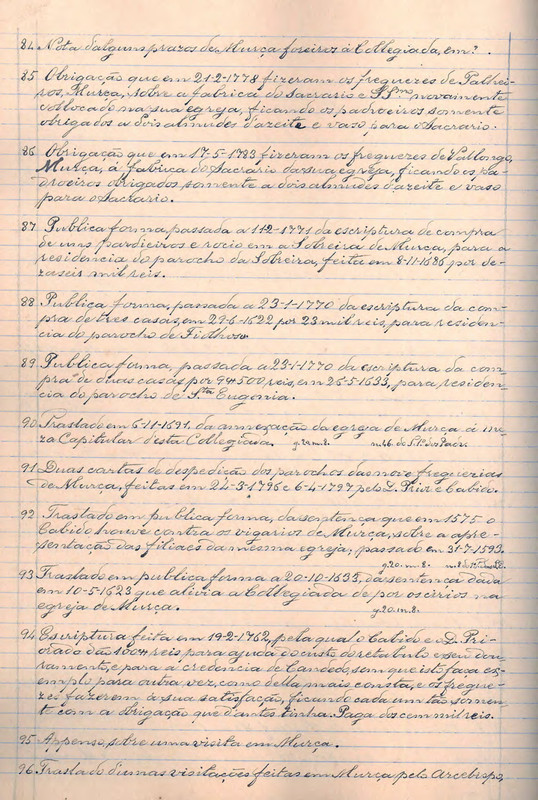 84 Nota d'alguns prazos de Murça foreiros á Collegiada, em?.
85 Obrigação que em 21-2-1778 fizeram os freguezes de Palhei-
ros, Murça, sobre a fabrica do Sacrario e SSmo novamente
collocado na sua egreja, ficando os padroeiros somente
obrigados a dois almudes d'azeite e vaso para o Sacrario.
86 Obrigação que em 17-5-1783 fizeram os freguezes de Vallongo,
Murça, á fabrica do Sacrario da sua egreja, ficando os pa-
droeiros obrigados somente a dois almudes d'azeite e vaso
para o Sacrario.
87 Publica forma, passada a 11-2-1771 da escriptura de compra
de uns pardieiros e rocio em a Sobreira de Murça, para a
residencia do parocho da Sobreira, feita em 8-11-1686 por de-
zaseis mil reis.
88 Publica forma, passada a 23-1-1770 da escriptura da com-
pra de tres casas, em 29-6-1622 por 23 mil reis, para residen-
cia do parocho de Fiolhoso
89 Publica forma, passada a 23-1-1770 da escriptura da com-
pra de duas casas por 94$500 reis, em 26-5-1633, para residen-
cia do parocho de Sta Eugenia.
90 Traslado em 6-11-1691, da annexação da egreja de Murça á me-
za Capitular d'esta Collegiada. g.20.m.8.
91 Duas cartas de despedição dos parochos das nove freguezias
de Murça, feitas em 24-3-1796 e 6-4-1797 pelo D. Prior e Cabido.
92 Traslado em publica forma, da sentença que em 1575 o
Cabido houve contra os vigarios de Murça, sobre a apre-
sentação das filiaes da mesma egreja, passado em 31-7-1593.
g.20.m.8.
93 Traslado em publica forma a 20-10-1635, da sentença dada
em 10-5-1623 que alivia a Collegiada de por os cirios na
egreja de Murça. g.20.m.8.
94 Escriptura feita em 19-2-1762, pela qual o Cabido e D. Pri-
orado dão 100$ reis para ajuda do custo do retabulo e seu dou-
ramento, e para a credencia de Candedo, sem que isto faça ex-
emplo para outra vez, como d'ella mais consta, e os fregue-
zes fazerem á sua satisfação, ficando cada um tão somen-
te com a obrigação que d'antes tinha. Paga dos cem mil reis.
95 Appenso, sobre uma visita em Murça.
96 Traslado d'umas visitações feitas em Murça pelo Arcebispo,